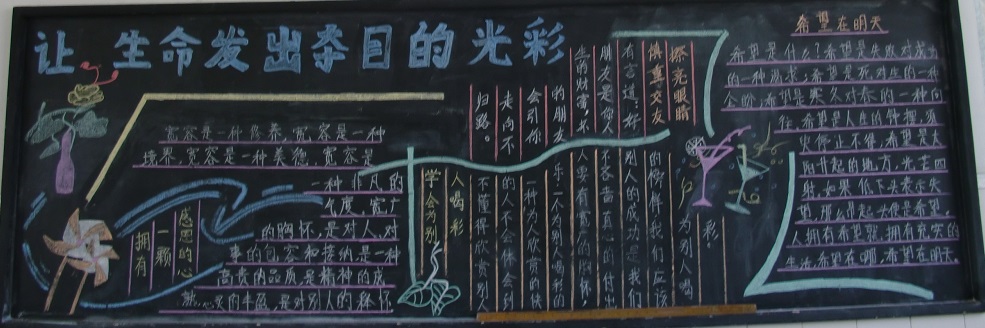 让生命发出夺目的光彩
宽容是一种修养,宽容是一种
境界,宽容是一种美德,宽容是
一种非凡的
气度,宽广
的胸怀,是对人,对
事的包容和接纳,是一种
高贵的品质,是精神的成
是对别人的释怀
拥有
一颗
感恩的心
学会为别
人喝彩
擦亮眼睛
慎重交友
有言道:好
朋友是你人
生的财富,不
的朋友
会引你
走向不
归路。
为别人喝
彩
的榜样,我们应该
别人的成功是我们
不吝啬真心的付出
人要有宽广的胸怀,
乐,一个为人喝彩的
一种为人欣赏的快
的人不会体会到
不懂得欣赏别人
希望在明天
希望是什么?希望是失败对成功
的一种渴求;希望是死对生的一种
企盼;希望是寒冬对春的一种向
往。希望是人生的钟摆,须
臾停止不得,希望是太
阳升起的地方,光芒四
射,如果低下头表示失
望,那么抬起头便是希望。
人拥有希望就拥有充实的
生活,希望在哪,希望在明天.